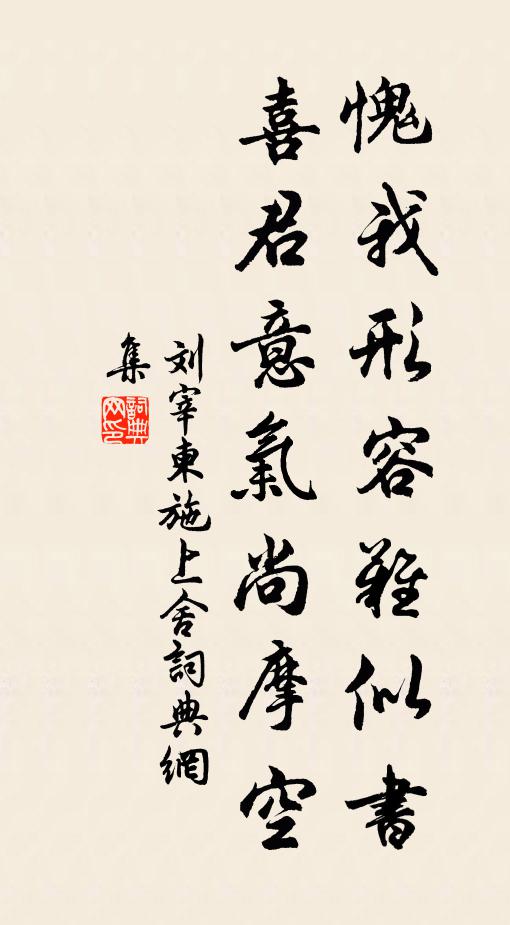 愧我形容難似書
喜君意氣尚摩空
刘宰東施上舍詞典網
集
詞典
网印